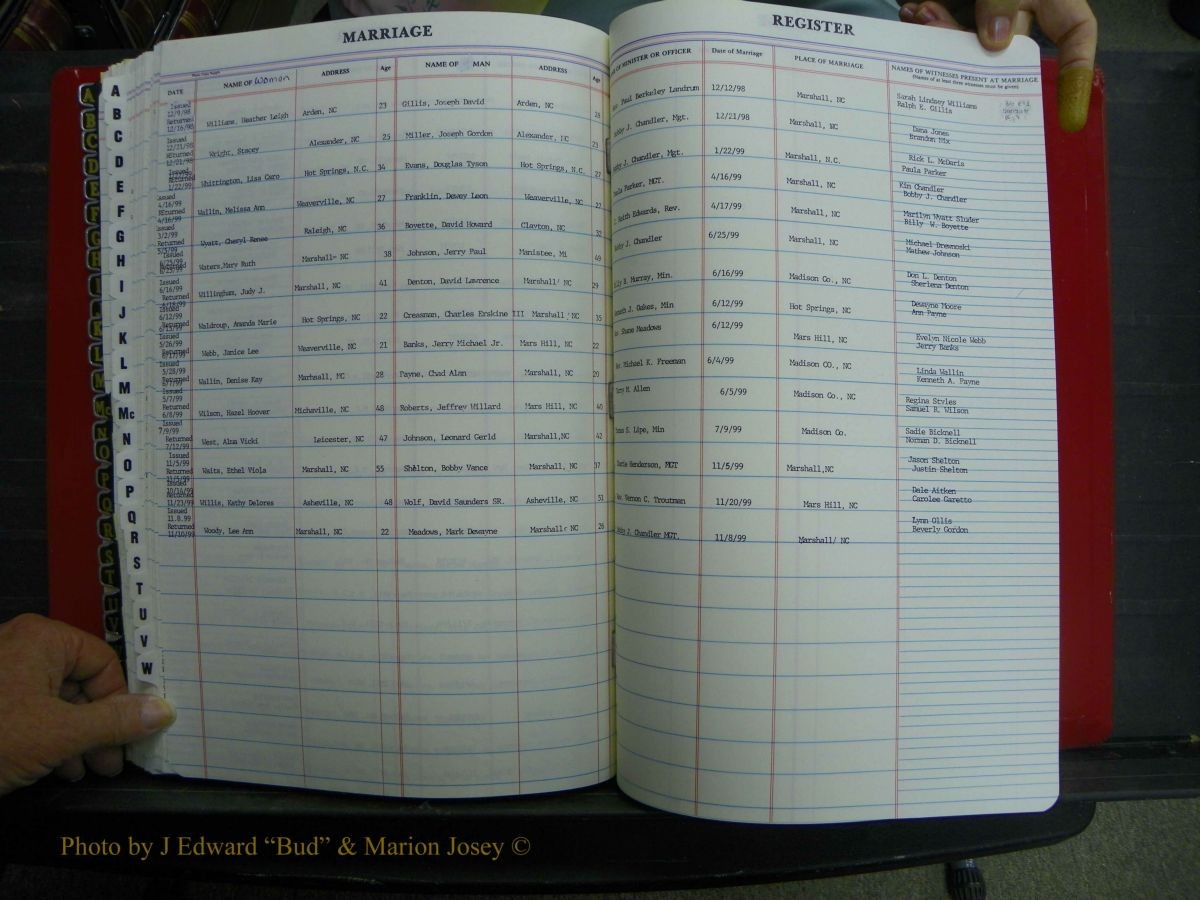 MARRIAGE
DATE NAME OF Woman ADDRESS Age NAME OF MAN ADDRESS Age
Issued 12/9/98 Returned 12/16/98 Williams, Heather Leigh Arden, NC 23 Gillis, Joseph David Arden, NC
Issued 12/21/98 Returned 12/21/98 Wright, Stacey Alexander, NC 25 Miller, Joseph Gordon Alexander, NC 23
Returned 1/22/99 Whittington, Lisa Caro Hot Springs, N.C. 34 Evans, Douglas Tyson Hot Springs, N.C. 27
Issued 4/16/99 REturned 4/16/99 Wallin, Melissa Ann Weaverville, NC 27 Franklin, Dewey Leon Weaverville, NC
Issued 3/2/99 Returned 5/5/99 Wyatt, Cheryl Renee Raleigh, NC 36 Boyette, David Howard Clayton, NC
Issued 6/25/99 Waters,Mary Ruth Marshall, NC 38 Johnson, Jerry Paul Manistee, Mi 49
Issued 6/16/99 Returned Willingham, Judy J. Marshall, NC 41 Denton, David Lawrence Marshall, NC 29
Issued 6/12/99 Returned Waldroup, Amanda Marie Hot Springs, NC 22 Creasman, Charles Erskine III Marshall, NC 35
Issued 5/26/99 Returned Webb, Janice Lee Weaverville, NC 21 Banks, Jerry Michael Jr. Mars Hill, NC 22
Issued 5/28/99 Wallin, Denise Kay Marhsall, NC 28 Payne, Chad Alan Marshall, NC 20
Issued 5/7/99 Returned 6/8/99 Wilson, Hazel Hoover Michaville, NC 48 Roberts, Jeffrey Willard Mars Hill, NC 40
Issued 7/9/99 Returned 7/12/99 West, Alma Vicki Leicester, NC 47 Johnson, Leonard Gerld Marshall,NC 42
Issued 11/5/99 Returned 11/5/99 Waits, Ethel Viola Marshall, NC 55 Shelton, Bobby Vance Marshall, NC 37
Returned 11/23/99 Willis, Kathy Delores Asheville, NC 48 Wolf, David Saunders SR. Asheville, NC 51
Issued 11.8.99 Returned 11/10/99 Woody, Lee Ann Marshall, NC 22 Meadows, Mark Dewayne Marshall, NC 26
A
B
C
D
E
F
G
H
I
J
K
L
M
Mc
N
O
P
Q
R
S
T
U
V
W
REGISTER
OF MINISTER OR OFFICER Date of Marriage PLACE OF MARRIAGE NAMES OF WITNESSES PRESENT AT MARRIAGE
(Names of at least three witnesses must be given)
Paul Berkeley Landrum 12/12/98 Marshall, NC Sarah Lindsey Williams
Ralph E. Gillis
J. Chandler, Mgt. 12/21/98 Marshall, NC Dana Jones
Brandon Nix
J. Chandler, Mgt. 1/22/99 Marshall, N.C. Rick L. McDaris
Paula Parker
Parker, MGT. 4/16/99 Marshall, NC Kim Chandler
Bobby J. Chandler
Keith Edwards, Rev. 4/17/99 Marshall, NC Marilyn Wyatt Sluder
Billy W. Boyette
J. Chandler 6/25/99 Marshall, NC Michael Drewnoski
Mathew Johnson
B. Murray, Min. 6/16/99 Madison Co., NC Don L. Denton
Sherlena Denton
J. Oakes, Min 6/12/99 Hot Springs, NC Dewayne Moore
Ann Payne
Shane Meadows 6/12/99 Mars Hill, NC Evelyn Nicole Webb
Jerry Banks
Michael K. Freeman 6/4/99 Madison CO., NC Linda Wallin
Kenneth A. Payne
M. Allen 6/5/99 Madison Co., NC Regina Styles
Samuel R. Wilson
S. Lipe, Min 7/9/99 Madison Co. Sadie Bicknell
Norman D. Bicknell
Henderson, MGT 11/5/99 Marshall,NC Jason Shelton
Justin Shelton
Vernon C. Troutman 11/20/99 Mars Hill, NC Dele Aitken
Carolee Garetto
J. Chandler MGT. 11/8/99 Marshall, NC Lynn Ollis
Beverly Gordon
Photo by J Edward “Bud” & Marion Josey ©